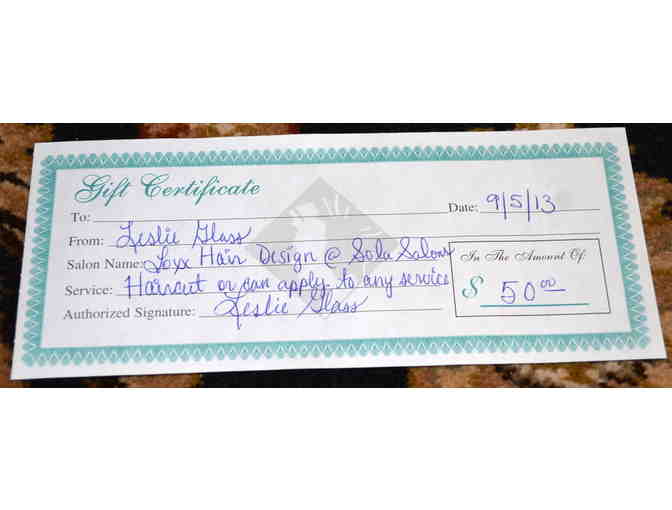 Gift Certificate
To: Date: 9/5/13
From: Leslie Glass
Salon Name: Loxx Hair Design @ Sola Salons
Service: Haircut or can apply to any service
Authorized Signature: Leslie Glass
In The Amount Of:
$ 50 00